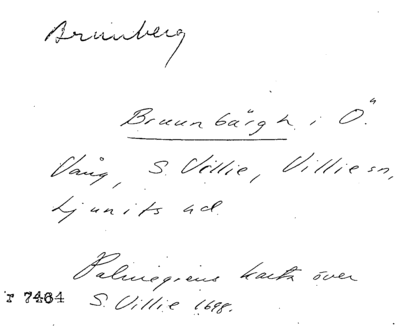 Brunnberg
Bruunbärgh i Ö.
Vång, S. Villie, Villie sn,
Ljunits hd
Palmegrens karta över
r 7464 S. Villie 1698.